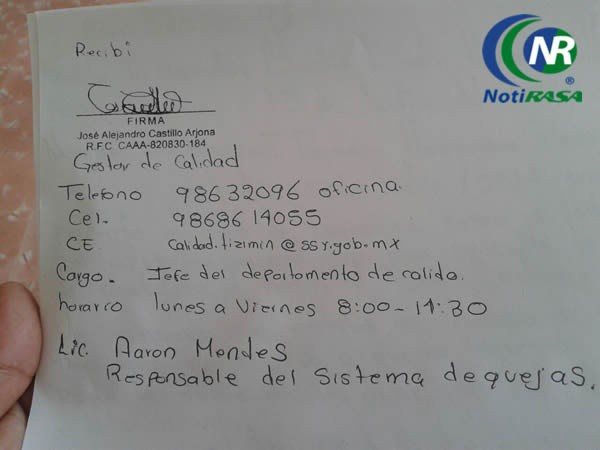 Recibi
NR
®
NotiRASA
FIRMA
José Alejandro Castillo Arjona
R.F.C. CAAA-820830-184
Gestor de Calidad
Telefono 98632096 oficina.
Cel. 9868614055
CE calidad.tizimin@ssy.gob.mx
Cargo. Jefe del departamento de calida.
horario lunes a Viernes 8:00-14:30
Lic. Aaron Mendes
Responsable del sistema de quejas.